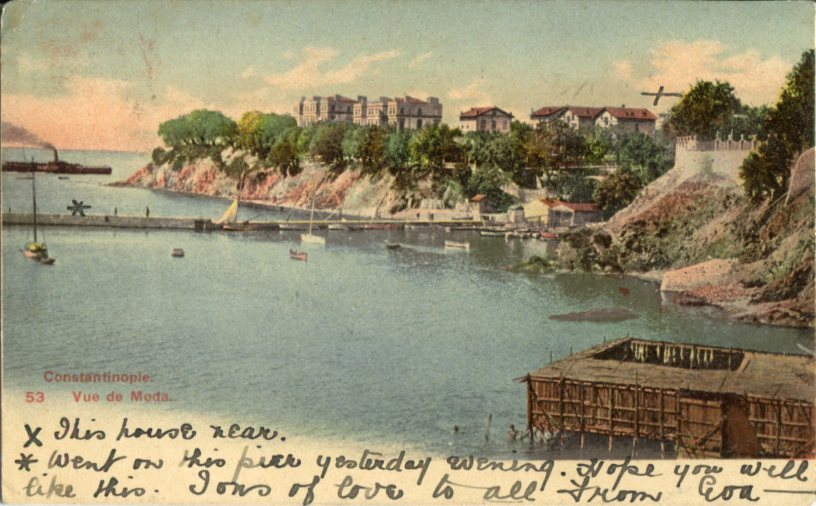 Constantinople.
53 Vue de Moda.
x This house near.
* Went on this pier yesterday evening. Hope you will
like this. Tons of love to all From Goa —